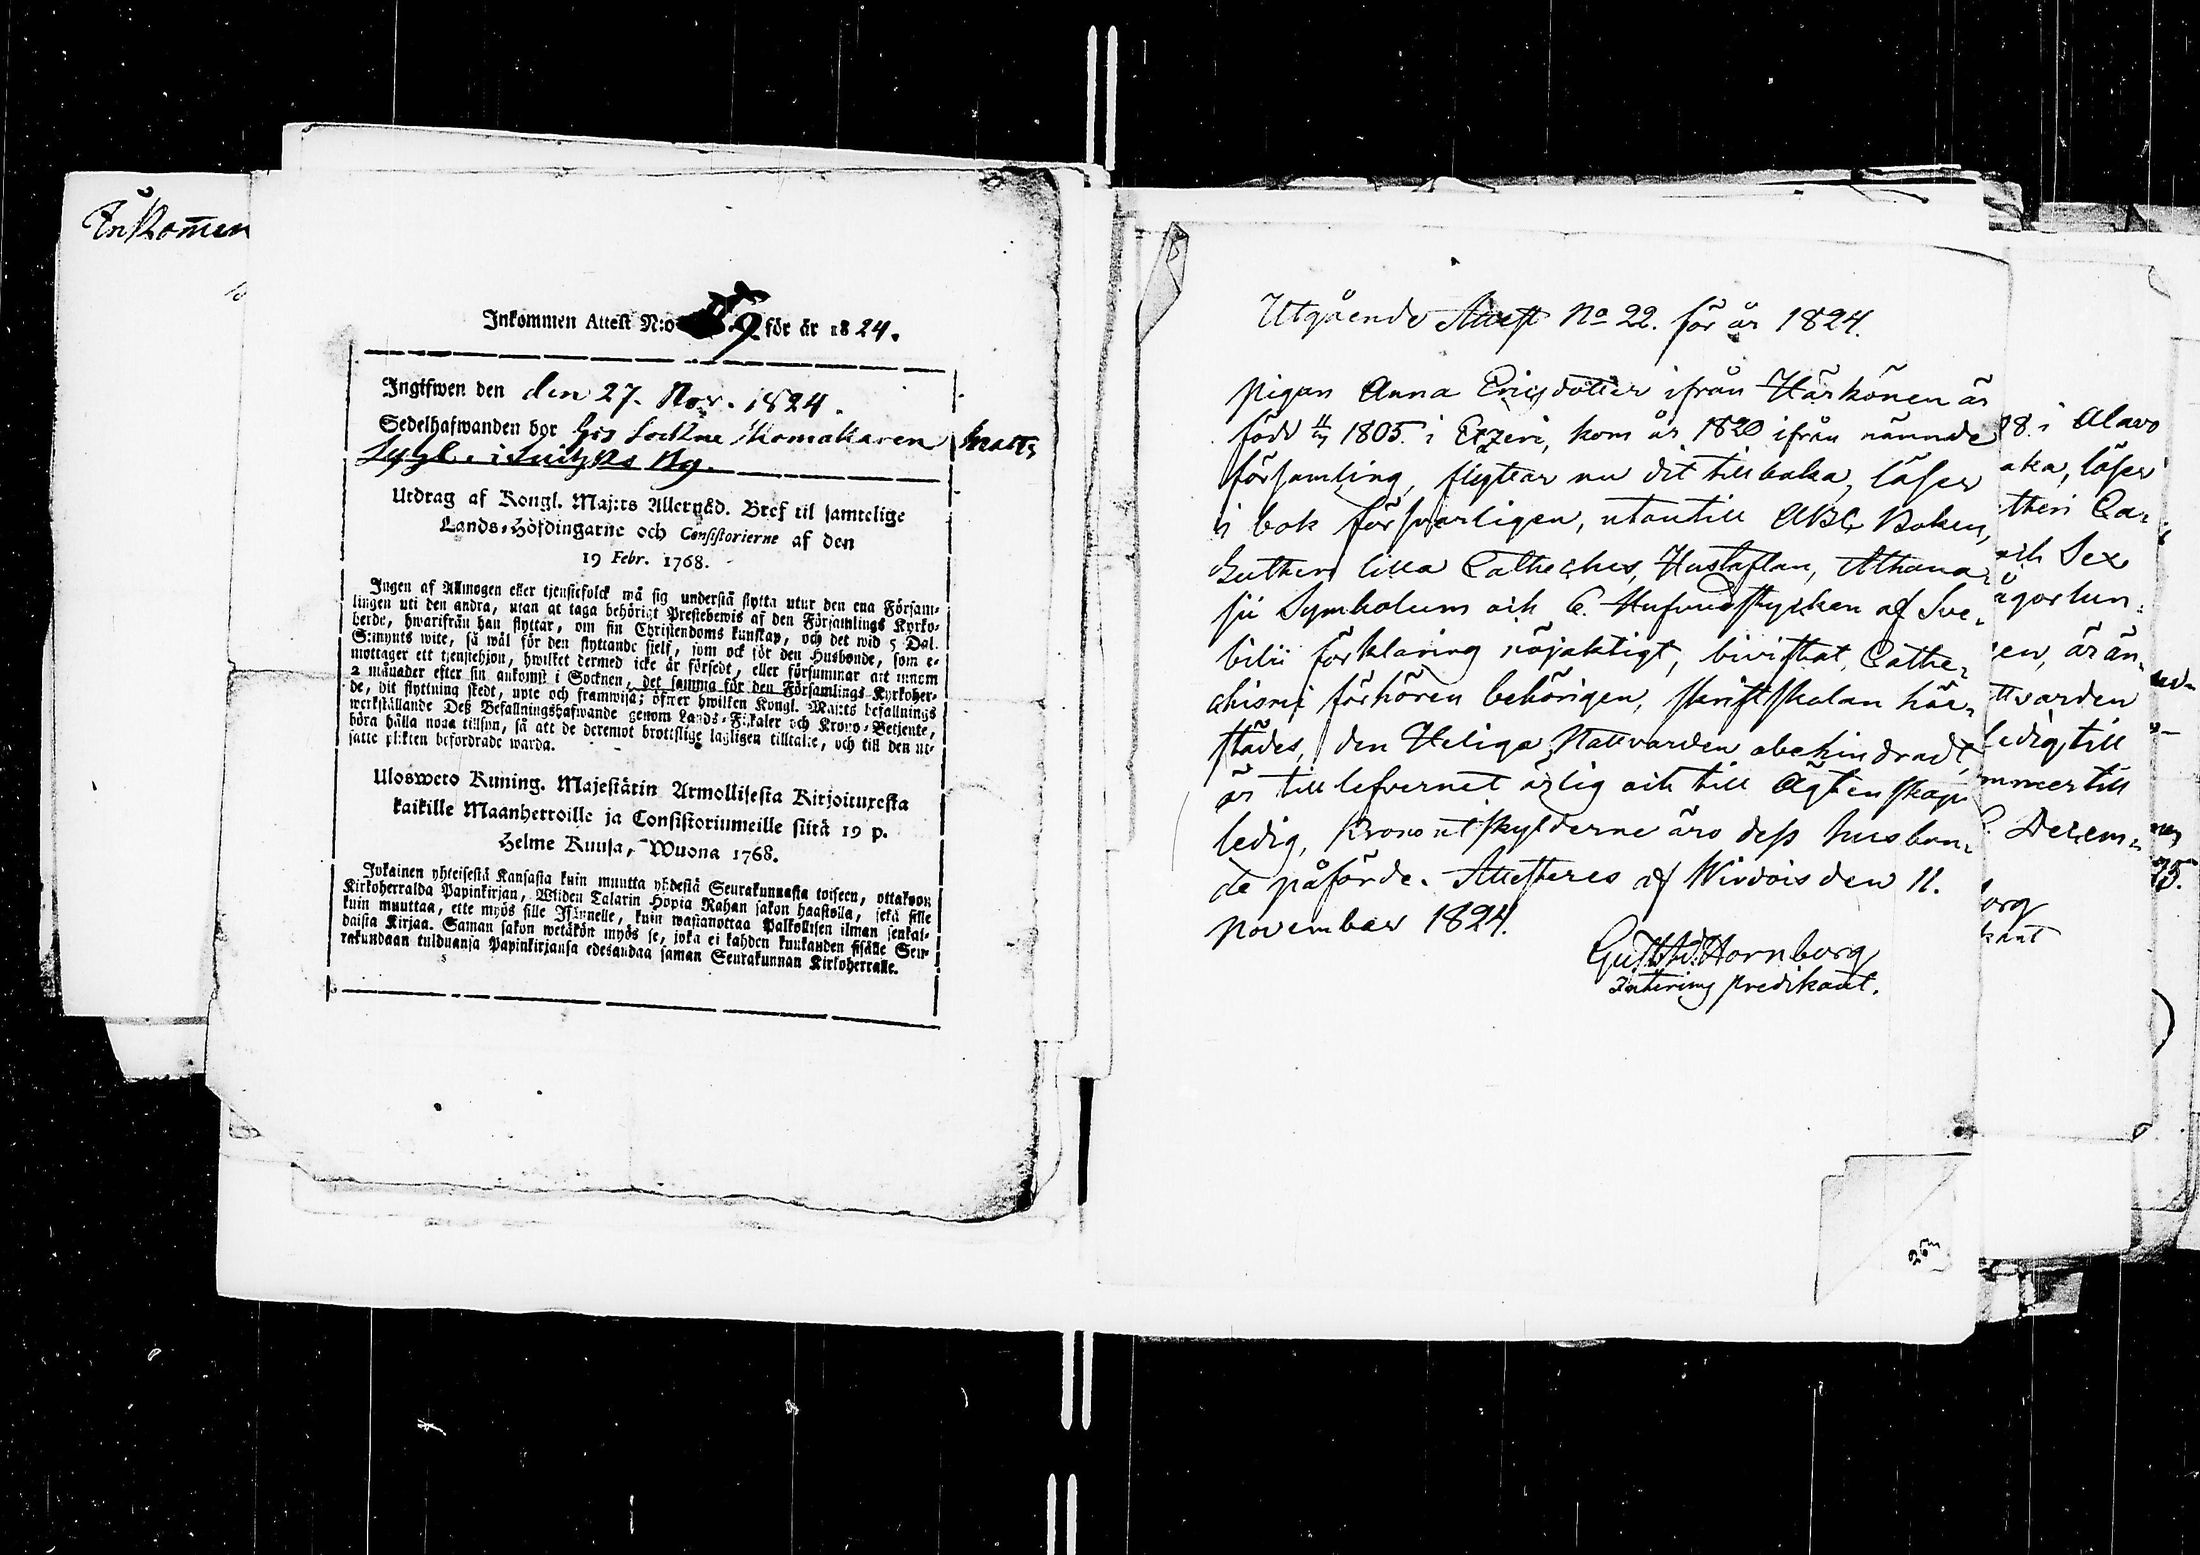 Inkom̄en
Inkommen Attest N:o 9 för år 1824.
Ingifwen den den 27. Nov. 1824.
Sedelhafwanden bor hos Sockne Skomakaren Matts
i Ny.
Utdrag af Kongl. Maj:ts Allernåd. Bref til samtelige
Lands-Höfdingarne och Consistorierne af den
19 Febr. 1768.
Ingen af Allmogen eller tjenstefolck må sig understå flytta utur den ena Försam-
lingen uti den andra, utan at taga behörigt Prestebewis af den Församlings Kyrko-
herde, hwarifrån han flyttar, om sin Christendoms kunskap, och det wid 5 Dal.
S:mynts wite, så wäl för den flyttande sielf, som ock för den Husbonde, som e-
mottager ett tjenstehjon, hwilket dermed icke är försedt, eller försummar att innom
2 månader efter sin ankomst i Socknen, det samma för den Församlings Kyrkoher-
de, dit flyttning skedt, upte och framwisa; öfwer hwilken Kongl. Maj:ts befallnings
werkställande Deß Befallningshafwande genom Lands-Fiskaler och Krono-Betjente,
böra hålla noga tillsyn, så att de deremot brottslige lagligen tilltalte, och till den ut-
satte plikten befordrade warda.
Uloswetо Kuning. Majestätin Armollisesta Kirjoituxesta
kaikille Maanherroille ja Consistoriumeille siitä 19 p.
Helme Kuusa, Wuona 1768.
Jokainen yhteisestä Kansasta kuin muutta yhdestä Seurakunnasta toiseen, ottakoon
Kirkoherralda Papinkirjan, Wiiden Talarin Hopia Rahan sakon haastolla, sekä sille
kuin muuttaa, ette myös sille Isännelle, kuin wastanottaa Palkollisen ilman senkal-
daista Kirjaa. Saman sakon wetäkön myös se, joka ei kahden kuukauden sisälle Seu-
rakundaan tulduansa Papinkirjansa edesandaa saman Seurakunnan Kirkoherralle.
Utgående Attest No 22. för år 1824.
pigan Anna Ericsdotter ifrån Härkönen är
född 1805. i Etzeri, kom år 1820 ifrån nämnde
församling, flyttar nu dit tillbaka, läser
i bok försvarligen, utantill ABC Boken,
Lutheri lilla Catheches, Hustaflan, Athana-
sii Symbolum och 6. Hufvudstycken af Sve-
bilii förklaring nöjaktigt, bivistat Cathe-
chismi förhören behörigen, skriftskolan här-
städes, den Heliga Nattvarden obehindradt,
är till lefvernet ärlig och till Ägtenskap
ledig, Kronoutskylderne äro dess husbon-
de påförde. Attesteras af Wirdois den 11.
november 1824.
Gust. Ad. Hornborg
Interims predikant.
28. i Alavo
aka, läser
theri Ca-
och Sex
ågorlun-
en, är än-
ttvarden
ledig till
mmer till
Decem-
org
kant